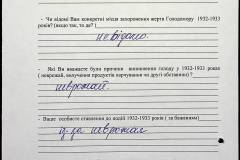 - Чи відомі Вам конкретні місця захоронення жертв Голодомору 1932-1933
років? (якщо так, то де? )
невідомо.
Які Ви вважаєте були причини виникнення голоду у 1932-1933 роках
( неврожай, вилучення продуктів харчування чи другі обставини) ?
неврожай.
- Ваше особисте ставлення до подій 1932-1933 років ( за бажанням)
неврожаї